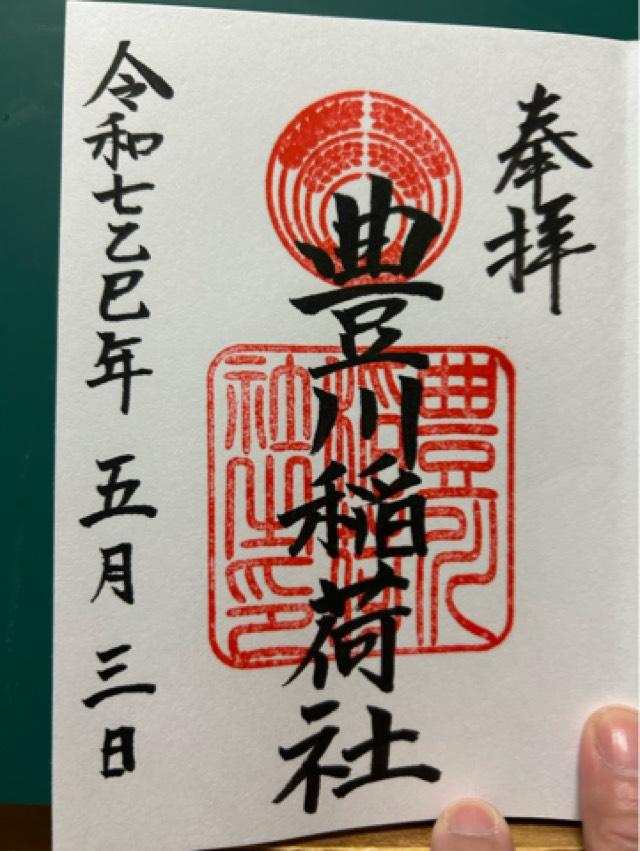 奉拝
豊川稲荷社
豊川稲荷社之印
令和七乙巳年 五月 三日